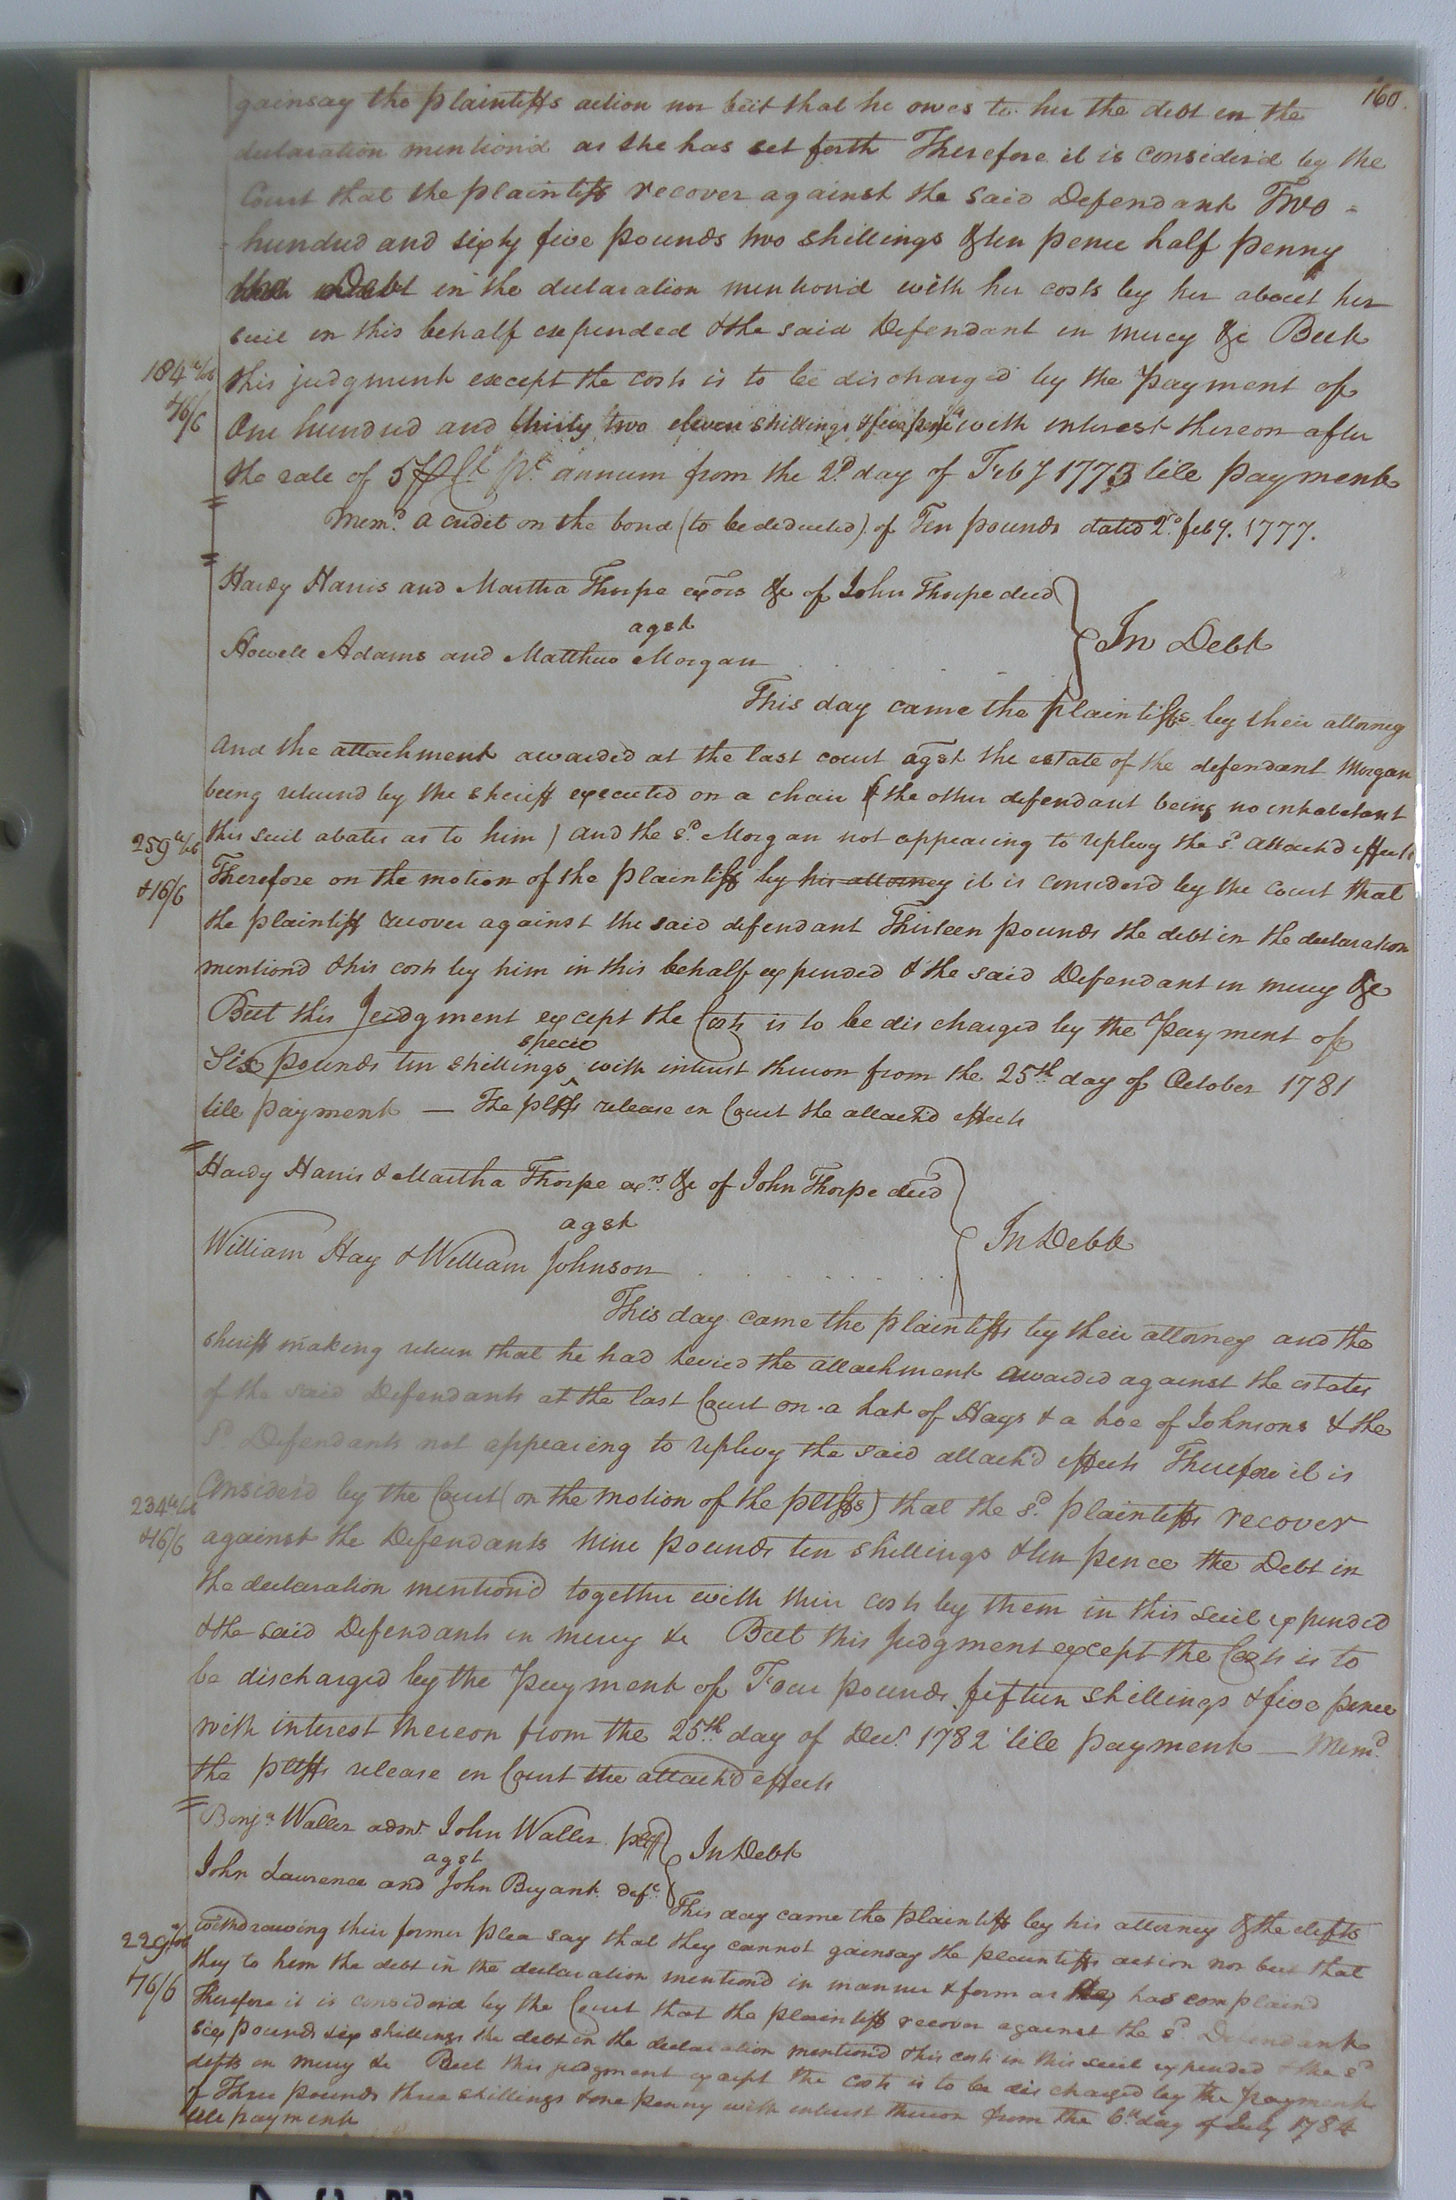 160.
gainsay the plaintiffs action nor but that he owes to her the debt in the
declaration mention'd as she has set forth Therefore it is consider'd by the
Court that the plaintiff recover against the said Defendant Two
hundred and sixty five pounds two shillings & ten pence half penny
Debt in the declaration mention'd with her costs by her about her
suit in this behalf expended & the said Defendant in mercy &c But
this judgment except the costs is to be discharged by the Payment of
One hundred and thirty two eleven shillings & five pence with interest thereon after
the rate of 5 annum from the 2d. day of Feby 1773 till payment
Memo. a credit on the bond (to be deducted) of Ten pounds dated 2d. feby. 1777.
184
+16/6
Hardy Harris and Martha Thorpe exors &c of John Thorpe decd
agst
Howell Adams and Matthew Morgan
In Debt
This day came the plaintiffs by their attorney
And the attachment awarded at the last court agst the estate of the defendant Morgan
being returnd by the sheriff executed on a chair (& the other defendant being no inhabitant
this suit abates as to him) and the sd. Morgan not appearing to replevy the sd. attach'd effects
Therefore on the motion of the plaintiff by his attorney it is consider'd by the court that
the plaintiff recover against the said defendant Thirteen pounds the debt in the declaration
mention'd & his costs by him in this behalf expended & the said Defendant in mercy &c
But this Judgment except the Costs is to be discharged by the Payment of
Six pounds ten shillings specie with interest thereon from the 25th day of October 1781
till payment — The pltffs release in Court the attach'd effects
259
+16/6
Hardy Harris & Martha Thorpe exrs. &c of John Thorpe decd
agst
William Hay & William Johnson
In Debt
This day came the plaintiffs by their attorney and the
sheriff making return that he had levied the attachment awarded against the estates
of the said Defendants at the last Court on a hat of Hays & a hoe of Johnsons & the
sd. Defendants not appearing to replevy the said attach'd effects Therefore it is
Consider'd by the Court (on the motion of the pltffs) that the sd. plaintiffs recover
against the Defendants Nine pounds ten shillings & ten pence the Debt in
the declaration mention'd together with their costs by them in this suit expended
& the said Defendants in mercy &c But this Judgment except the Costs is to
be discharged by the Payment of Four pounds fifteen shillings & five pence
with interest thereon from the 25th day of Decr. 1782 till payment — Memd.
the pltffs release in Court the attach'd effects
234
+16/6
Benja. Waller admr. John Waller pltff
agst
John Lawrence and John Bryant. defts.
In Debt
This day came the plaintiff by his attorney & the defts
withdrawing their former plea say that they cannot gainsay the plaintiffs action nor but that
they to him the debt in the declaration mention'd in manner & form as has complaind
Therefore it is consider'd by the Court that the plaintiff recover against the sd. Defendants
six pounds six shillings the debt in the declaration mention'd & his costs in this suit expended & the sd
defts in mercy &c But this judgment except the costs is to be discharged by the payment
of Three pounds three shillings & one penny with interest thereon from the 6th day of July 1784
till payment
229
+16/6